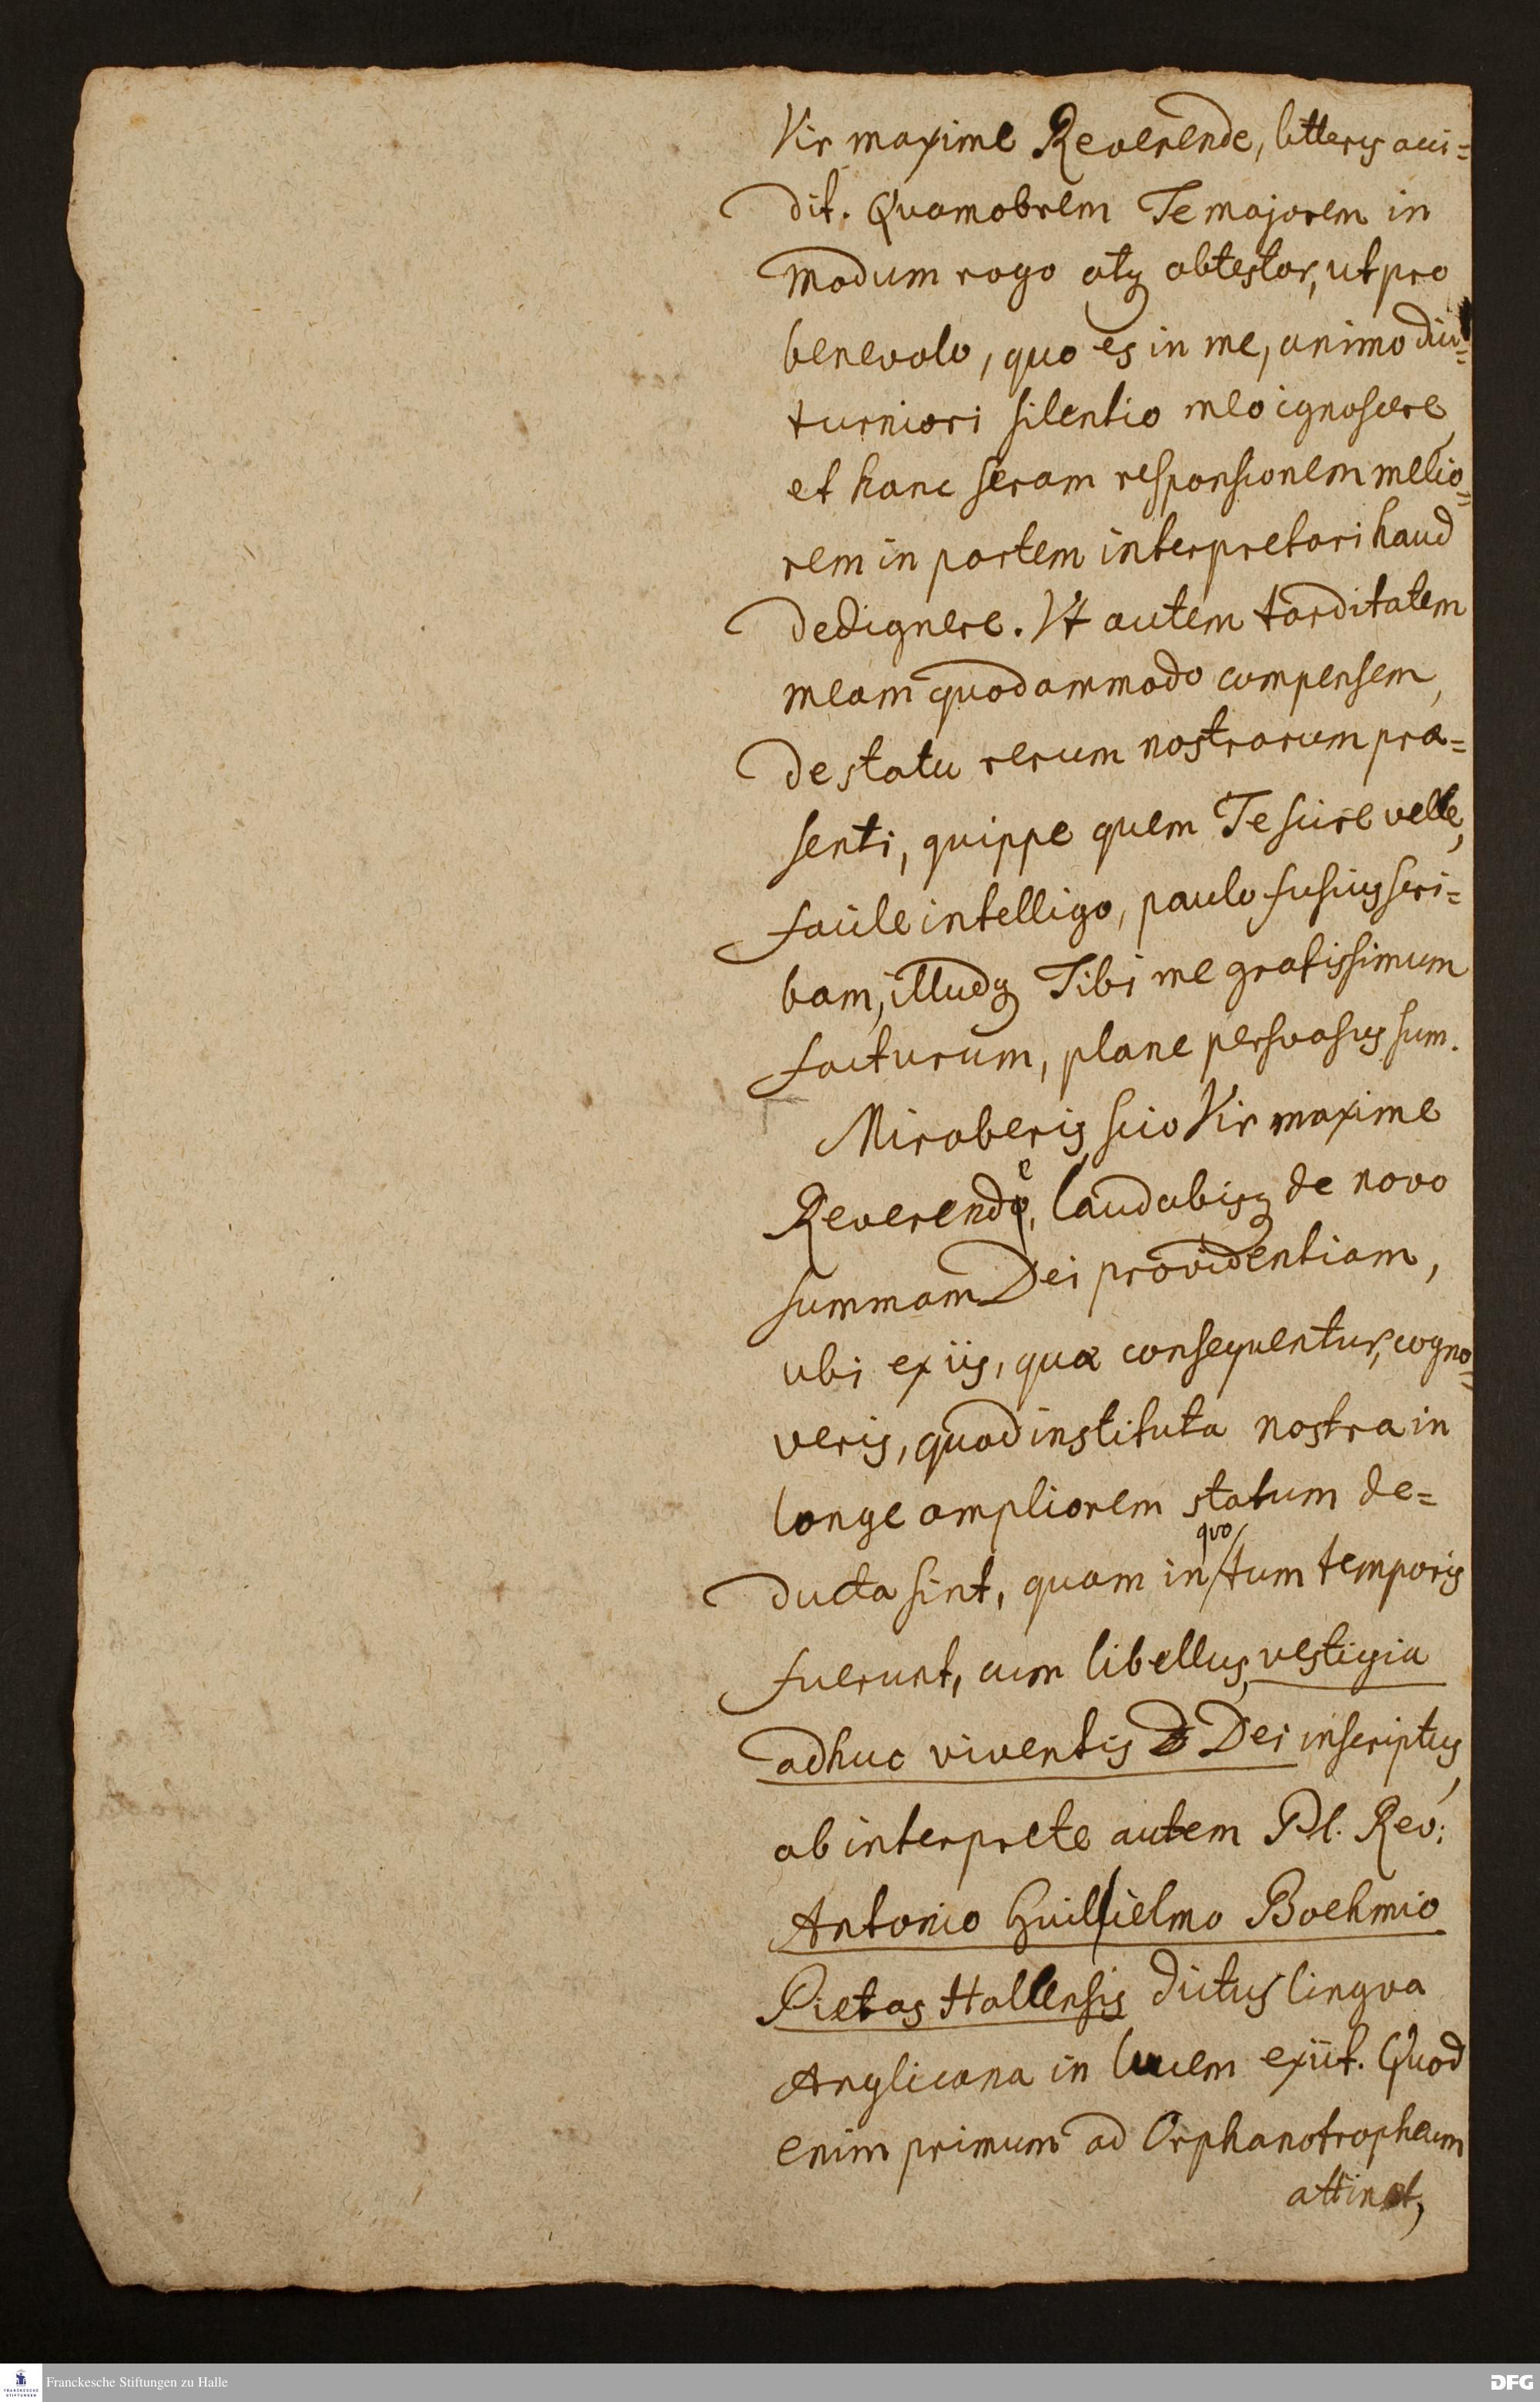 Vir maxime Reverende, litteris acci=
dit. Quamobrem Te majorem in
modum rogo atq obtestor, ut pro
benevolo, quo es in me, animo diu=
turniori silentio meo ignoscere,
et hanc seram responsionem melio=
rem in partem interpretari haud
dedignere. Vt autem tarditatem
meam quodammodo compensem,
de statu rerum nostrarum præ=
senti, quippe quem Te scire velle,
facile intelligo, paulo fusius scri=
bam, illudq Tibi me gratissimum
facturum, plane persvasus sum.
Miraberis scio Vir maxime
Reverende, laudabisq de novo
summam Dei providentiam,
ubi ex iis, quæ consequentur, cogno=
veris, quod instituta nostra in
longe ampliorem statum de=
ducta sint, quam in quo tum temporis
fuerunt, cum libellus, vestigia
adhuc viventis Dei inscriptus,
ab interprete autem Pl. Rev:
Antonio Guilielmo Boehmio
Pietas Hallensis dictus lingva
Anglicana in lucem exiit. Quod
enim primum ad Orphanotropheum
attinet,
Franckesche Stiftungen zu Halle
FRANCKESCHE
STIFTUNGEN
DFG